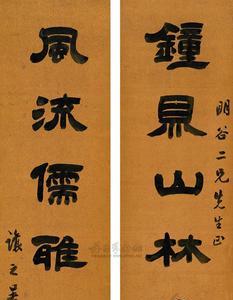 明谷二兄先生正
鐘鼎山林
風流儒雅
讓之吳